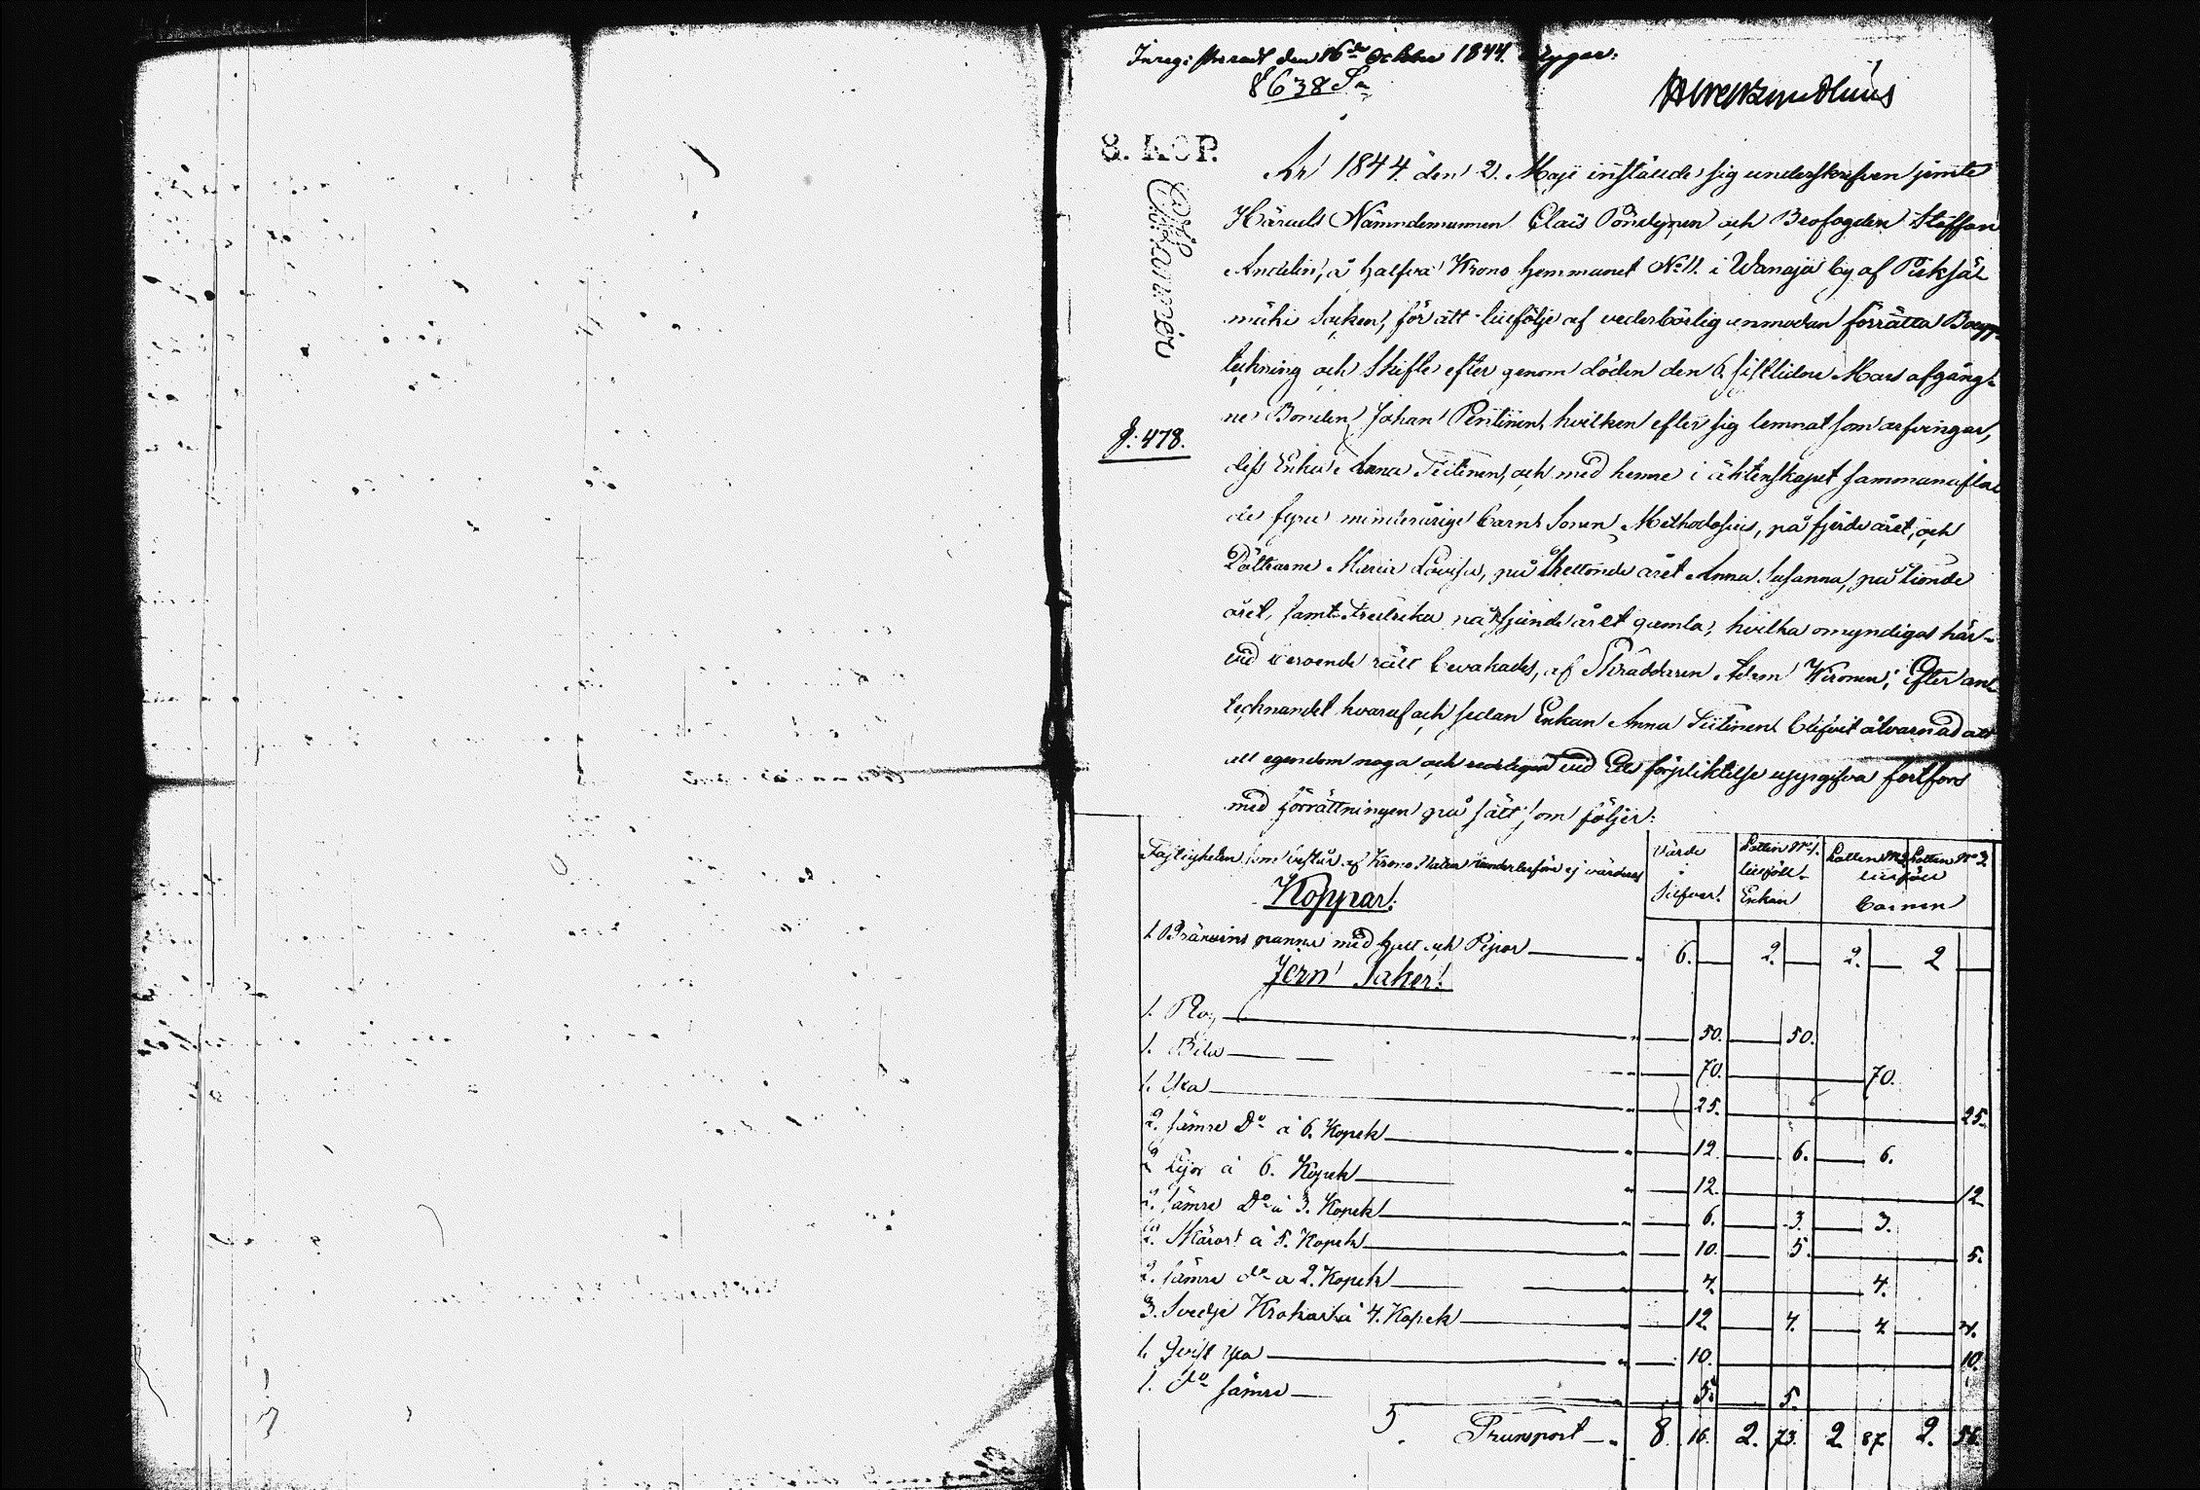 Inregistreradt den 16de October 1844. intygar:
8638 Sn
8. KOP.
År 1844. den 2. Maji instälde sig underskrefven jemte
Härads Nämndemannen Claës Pöndynen och Brofogden Staffan
Andelin, å halfva Krono hemmanet No 11. i Wanaja by af Pieksä-
mäki Socken, för att tillfölje af vederbörlig anmodan förrätta Boupp-
teckning och Skifte efter genom döden den 6. sistlidne Mars afgång-
ne Bonden Johan Pentinen, hvilken efter sig lemnat som arfvingar,
dess Enka Anna Teitinen, och med henne i äktenskapet sammanafla-
de fyra minderårige barn Sonen Methodosius, på fjerde året, och
Döttrarne Maria Lovisa, på trettonde året Anna Susanna, på tionde
året, samt Fredrika på sjunde året gamla, hvilka omyndigas här-
vid beroende rätt bevakades, af Skräddaren Adam Wironen; Efter an-
tecknandet hvaraf och sedan Enkan Anna Teitinen blifvit åtvarnad att
all egendom noga och redeligen vid Eds förpliktelse uppgifva fortfors
med förrättningen på sätt som följer:
§: 478.
Fastigheten som består af Krono Natur värderades ej
Värde i Silfver. Lotten No 1. tillföll Enkan Lotten No 2 Lotten No 3 tillföll Barnen
Koppar:
1 Bränvins panna med hatt och Pipor 6. 2. 2. 2
Jern Saker:
1. Plog 50. 50.
1. Bila 70. 70.
1. Yxa 25. 25.
2. sämre Do à 6. Kopek 12. 6. 6.
2 Liar à 6. Kopek 12. 12
2. sämre Do à 3. Kopek 6. 3. 3.
2. Skäror à 5. Kopek 10. 5. 5.
2. sämre do à 2. Kopek 4. 4.
3. Svedje Krokar à 4. Kopek 12 4. 4 4.
1. yxa 10. 10.
1. do sämre 5. 5.
Transport 8. 16. 2. 73. 2 87 2. 56.